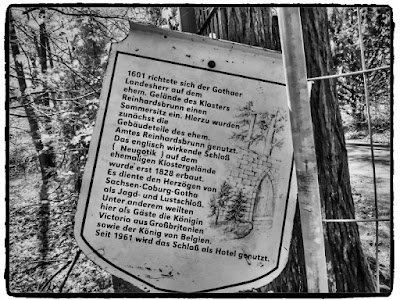 1601 richtete sich der Gothaer
Landesherr auf dem
ehem. Gelände des Klosters
Reinhardsbrunn einen
Sommersitz ein. Hierzu wurden
zunächst die
Gebäudeteile des ehem.
Amtes Reinhardsbrunn genutzt.
Das englisch wirkende Schloß
( Neugotik ) auf dem
ehemaligen Klostergelände
wurde erst 1828 erbaut.
Es diente den Herzögen von
Sachsen-Coburg-Gotha
als Jagd- und Lustschloß.
Unter anderem weilten
hier als Gäste die Königin
Victoria aus Großbritenien
sowie der König von Belgien.
Seit 1961 wird das Schloß als Hotel genutzt.